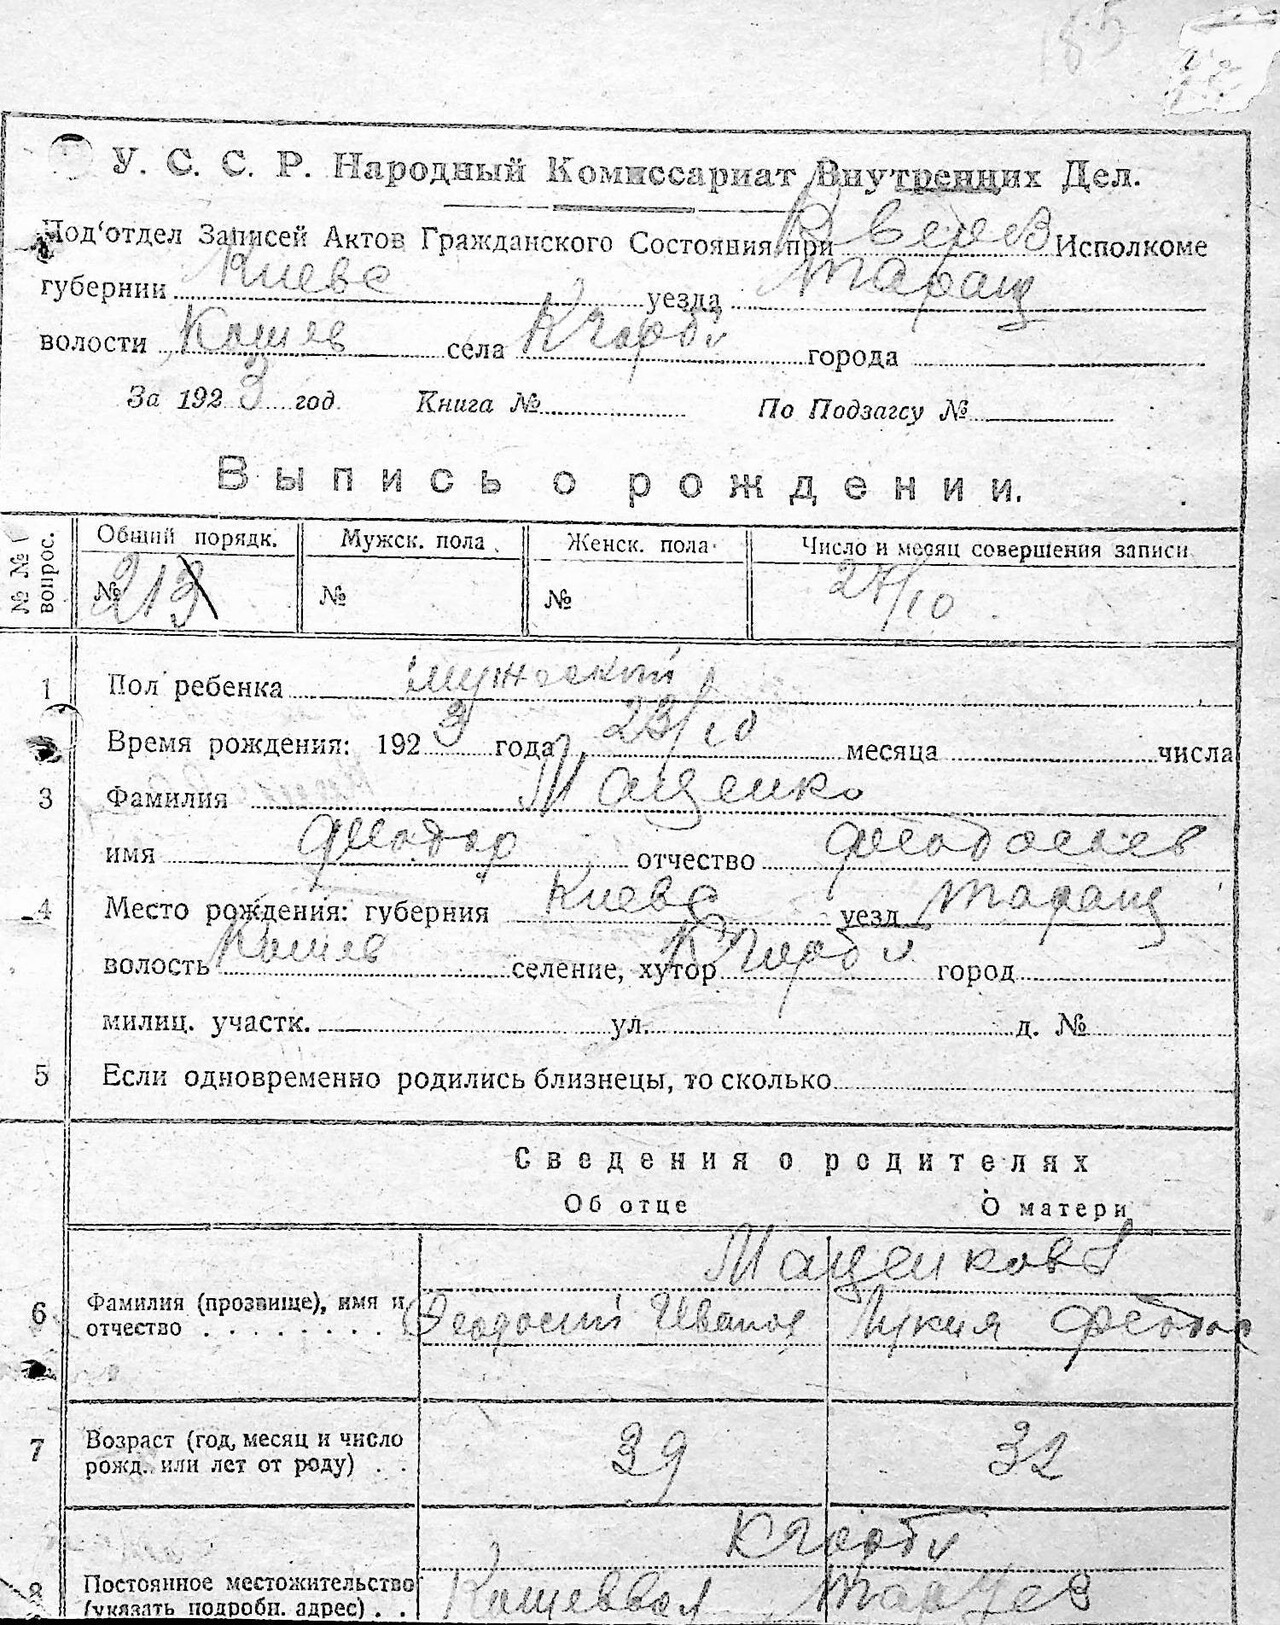 185
У. С. С. Р. Народный Комиссариат Внутренних Дел.
Под'отдел Записей Актов Гражданского Состояния при Исполкоме
губернии Киевс уезда Таращ
волости Кошев села К Горби города
За 1923 год. Книга № По Подзагсу №
Выпись о рождении.
№ № вопрос. Общий порядк. Мужск. пола Женск. пола Число и месяц совершения записи
№ 213 № № 27/10
1 Пол ребенка мужеский
Время рождения: 1923 года 23/10 месяца числа
3 Фамилия Маценко
имя Феодор отчество Феодосиев
4 Место рождения: губерния Киевс уезд Таращ
волость Кошев селение, хутор К Горби город
милиц. участк. ул. д. №
5 Если одновременно родились близнецы, то сколько
Сведения о родителях
Об отце О матери
Маценкова
6 Фамилия (прозвище), имя и отчество Феодосий Иванов Лукия Феодор
7 Возраст (год, месяц и число рожд. или лет от роду) 39 32
К Горби
8 Постоянное местожительство (указать подробн. адрес)